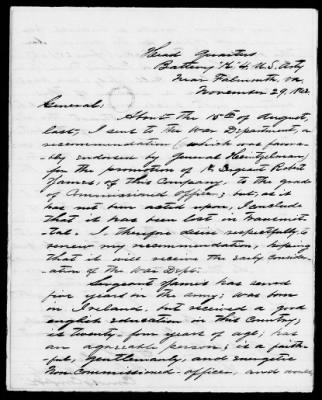 Head Quarters
Battery "K" 4. U.S. Arty
Near Falmouth Va.
November 29, 1862.
General:
About the 15th of August,
last, I sent to the War Department, a
recommendation (which was favora-
bly endorsed by General Heintzelman)
for the promotion of Sergeant Robert
James, of this Company, to the grade
of Commissioned officer; but, as it
has not been acted upon, I conclude
that it has been lost in transmit-
tal. I therefore desire respectfully to
renew my recommendation, hoping
that it will receive the early consider-
ation of the War Dept.
Sergeant James has served
five years in the army; was born
in Ireland, but received a good
english education in this Country;
is twenty-four years of age; has
an agreeable person; is a faith-
ful, gentlemanly, and energetic
Non Commissioned-officer, and